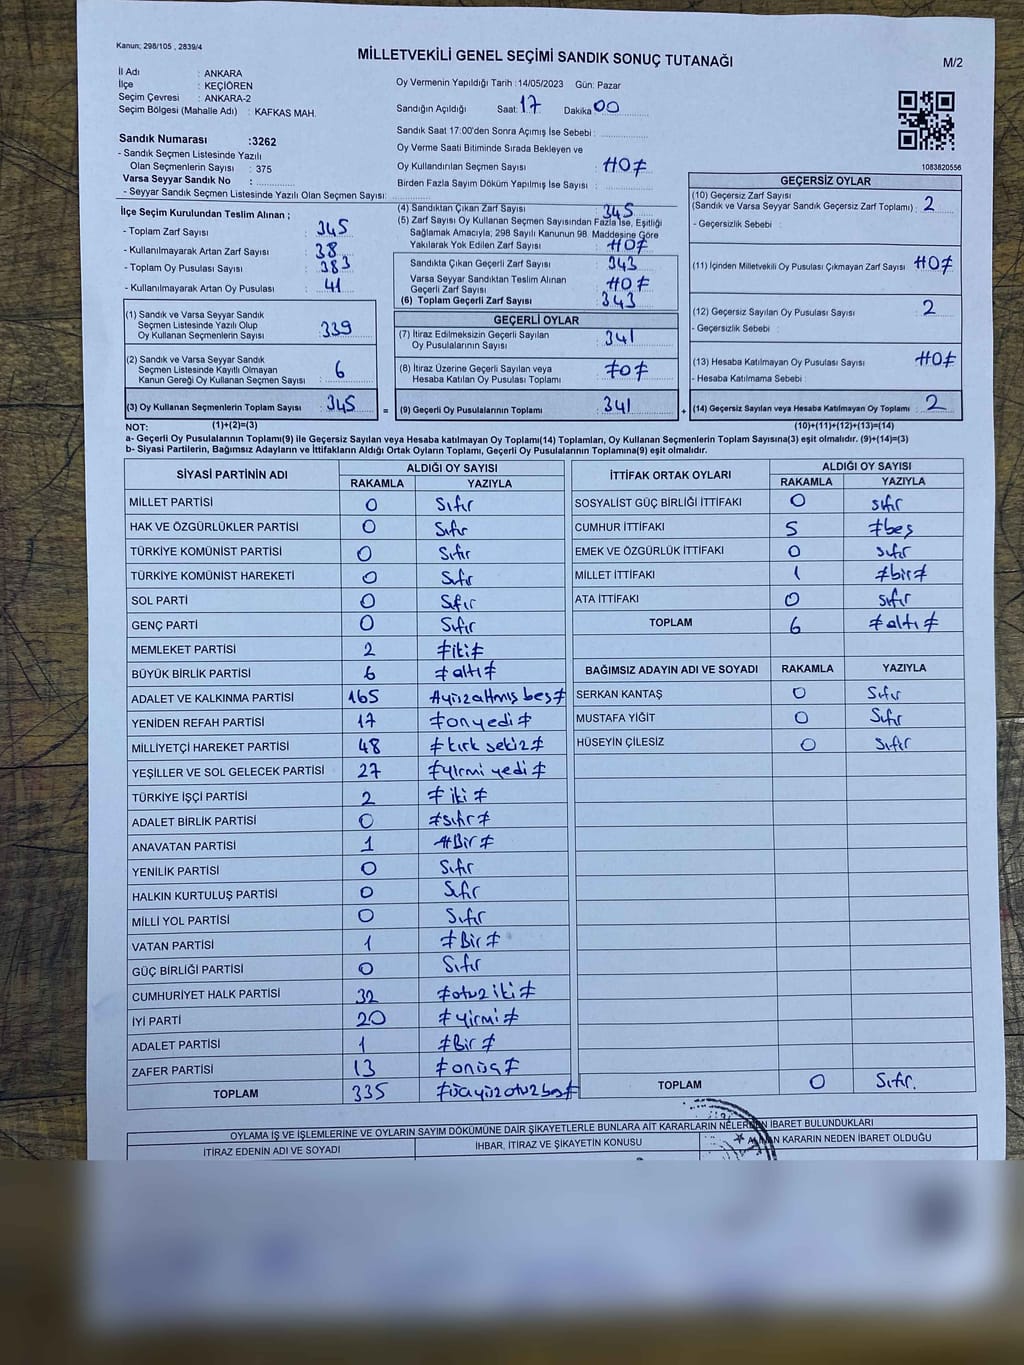 Kanun; 298/105 , 2839/4
MİLLETVEKİLİ GENEL SEÇİMİ SANDIK SONUÇ TUTANAĞI
M/2
İl Adı : ANKARA
İlçe : KEÇİÖREN
Seçim Çevresi : ANKARA-2
Seçim Bölgesi (Mahalle Adı) : KAFKAS MAH.
Sandık Numarası :3262
- Sandık Seçmen Listesinde Yazılı
Olan Seçmenlerin Sayısı : 375
Varsa Seyyar Sandık No :
- Seyyar Sandık Seçmen Listesinde Yazılı Olan Seçmen Sayısı:
Oy Vermenin Yapıldığı Tarih :14/05/2023 Gün: Pazar
Sandığın Açıldığı Saat: 17 Dakika 00
Sandık Saat 17:00'den Sonra Açımış İse Sebebi :
Oy Verme Saati Bitiminde Sırada Bekleyen ve
Oy Kullandırılan Seçmen Sayısı : #0≠
Birden Fazla Sayım Döküm Yapılmış İse Sayısı :
1083820556
İlçe Seçim Kurulundan Teslim Alınan ;
- Toplam Zarf Sayısı : 345
- Kullanılmayarak Artan Zarf Sayısı : 38
- Toplam Oy Pusulası Sayısı : 383
- Kullanılmayarak Artan Oy Pusulası : 41
(1) Sandık ve Varsa Seyyar Sandık
Seçmen Listesinde Yazılı Olup
Oy Kullanan Seçmenlerin Sayısı : 339
(2) Sandık ve Varsa Seyyar Sandık
Seçmen Listesinde Kayıtlı Olmayan
Kanun Gereği Oy Kullanan Seçmen Sayısı : 6
(3) Oy Kullanan Seçmenlerin Toplam Sayısı : 345
(4) Sandıktan Çıkan Zarf Sayısı : 345
(5) Zarf Sayısı Oy Kullanan Seçmen Sayısından Fazla İse, Eşitliği
Sağlamak Amacıyla; 298 Sayılı Kanunun 98. Maddesine Göre
Yakılarak Yok Edilen Zarf Sayısı : #0≠
Sandıkta Çıkan Geçerli Zarf Sayısı : 343
Varsa Seyyar Sandıktan Teslim Alınan
Geçerli Zarf Sayısı : #0≠
(6) Toplam Geçerli Zarf Sayısı : 343
GEÇERLİ OYLAR
(7) İtiraz Edilmeksizin Geçerli Sayılan
Oy Pusulalarının Sayısı : 341
(8) İtiraz Üzerine Geçerli Sayılan veya
Hesaba Katılan Oy Pusulası Toplamı : ≠0≠
= (9) Geçerli Oy Pusulalarının Toplamı : 341
GEÇERSİZ OYLAR
(10) Geçersiz Zarf Sayısı
(Sandık ve Varsa Seyyar Sandık Geçersiz Zarf Toplamı) : 2
- Geçersizlik Sebebi :
(11) İçinden Milletvekili Oy Pusulası Çıkmayan Zarf Sayısı : #0≠
(12) Geçersiz Sayılan Oy Pusulası Sayısı : 2
- Geçersizlik Sebebi :
(13) Hesaba Katılmayan Oy Pusulası Sayısı : #0≠
- Hesaba Katılmama Sebebi :
+ (14) Geçersiz Sayılan veya Hesaba Katılmayan Oy Toplamı : 2
NOT: (1)+(2)=(3) (10)+(11)+(12)+(13)=(14)
a- Geçerli Oy Pusulalarının Toplamı(9) ile Geçersiz Sayılan veya Hesaba katılmayan Oy Toplamı(14) Toplamları, Oy Kullanan Seçmenlerin Toplam Sayısına(3) eşit olmalıdır. (9)+(14)=(3)
b- Siyasi Partilerin, Bağımsız Adayların ve İttifakların Aldığı Ortak Oyların Toplamı, Geçerli Oy Pusulalarının Toplamına(9) eşit olmalıdır.
SİYASİ PARTİNİN ADI ALDIĞI OY SAYISI
RAKAMLA YAZIYLA
MİLLET PARTİSİ 0 Sıfır
HAK VE ÖZGÜRLÜKLER PARTİSİ 0 Sıfır
TÜRKİYE KOMÜNİST PARTİSİ 0 Sıfır
TÜRKİYE KOMÜNİST HAREKETİ 0 Sıfır
SOL PARTİ 0 Sıfır
GENÇ PARTİ 0 Sıfır
MEMLEKET PARTİSİ 2 ≠iki≠
BÜYÜK BİRLİK PARTİSİ 6 ≠altı≠
ADALET VE KALKINMA PARTİSİ 165 #yüzaltmış beş≠
YENİDEN REFAH PARTİSİ 17 ≠onyedi≠
MİLLİYETÇİ HAREKET PARTİSİ 48 ≠kırk sekiz≠
YEŞİLLER VE SOL GELECEK PARTİSİ 27 ≠yirmi yedi≠
TÜRKİYE İŞÇİ PARTİSİ 2 ≠iki≠
ADALET BİRLİK PARTİSİ 0 ≠sıfır≠
ANAVATAN PARTİSİ 1 #Bir≠
YENİLİK PARTİSİ 0 Sıfır
HALKIN KURTULUŞ PARTİSİ 0 Sıfır
MİLLİ YOL PARTİSİ 0 Sıfır
VATAN PARTİSİ 1 ≠Bir≠
GÜÇ BİRLİĞİ PARTİSİ 0 Sıfır
CUMHURİYET HALK PARTİSİ 32 ≠otuz iki≠
İYİ PARTİ 20 ≠yirmi≠
ADALET PARTİSİ 1 ≠Bir≠
ZAFER PARTİSİ 13 ≠onüç≠
TOPLAM 335 ≠üçyüzotuzbeş≠
İTTİFAK ORTAK OYLARI ALDIĞI OY SAYISI
RAKAMLA YAZIYLA
SOSYALİST GÜÇ BİRLİĞİ İTTİFAKI 0 sıfır
CUMHUR İTTİFAKI 5 ≠beş
EMEK VE ÖZGÜRLÜK İTTİFAKI 0 sıfır
MİLLET İTTİFAKI 1 ≠bir≠
ATA İTTİFAKI 0 sıfır
TOPLAM 6 ≠altı≠
BAĞIMSIZ ADAYIN ADI VE SOYADI RAKAMLA YAZIYLA
SERKAN KANTAŞ 0 Sıfır
MUSTAFA YİĞİT 0 Sıfır
HÜSEYİN ÇİLESİZ 0 Sıfır
TOPLAM 0 Sıfır.
OYLAMA İŞ VE İŞLEMLERİNE VE OYLARIN SAYIM DÖKÜMÜNE DAİR ŞİKAYETLERLE BUNLARA AİT KARARLARIN NELERDEN İBARET BULUNDUKLARI
İTİRAZ EDENİN ADI VE SOYADI İHBAR, İTİRAZ VE ŞİKAYETİN KONUSU ALINAN KARARIN NEDEN İBARET OLDUĞU